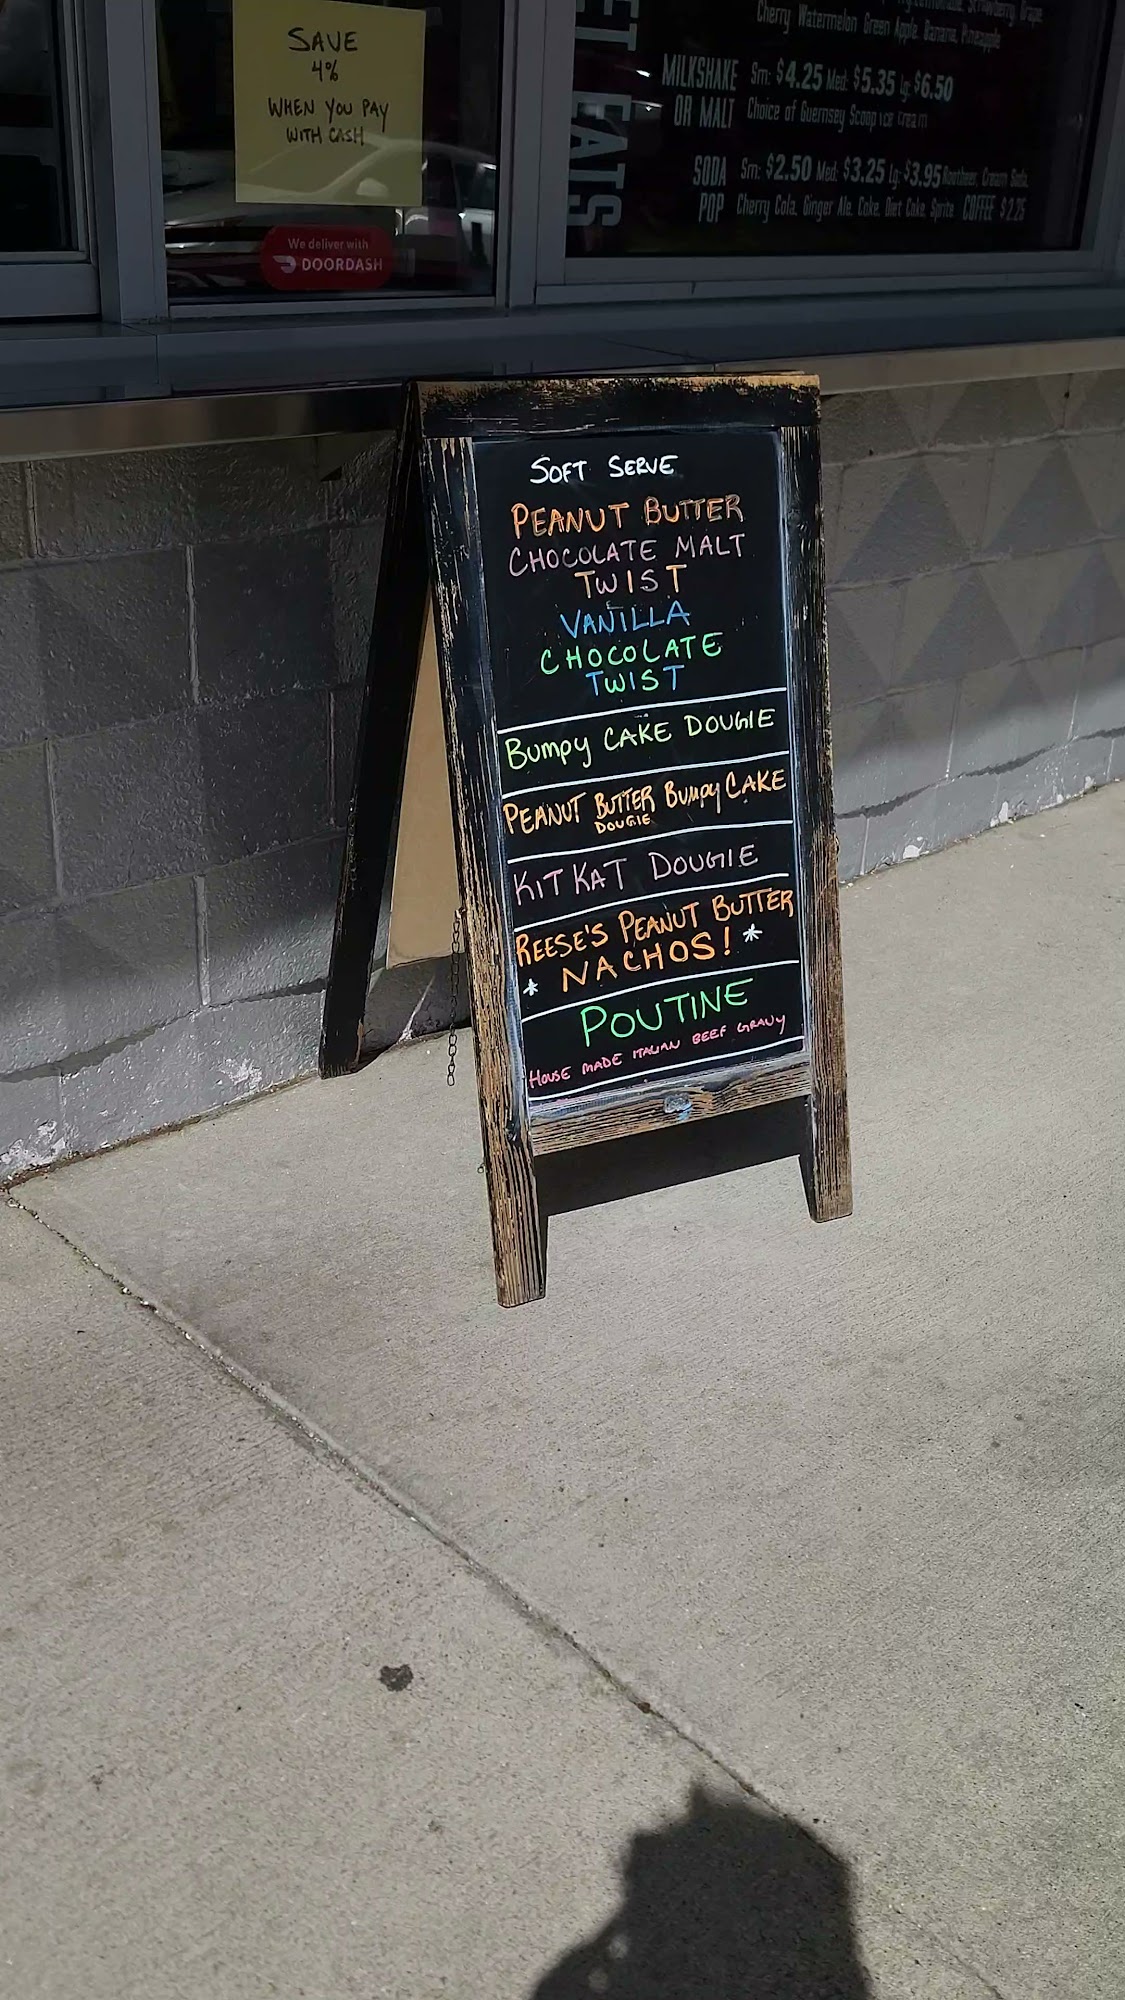 SAVE
4%
WHEN YOU PAY
WITH CASH
We deliver with
DOORDASH
EATS
Strawberry, Grape,
Cherry Watermelon Green Apple, Banana, Pineapple
MILKSHAKE Sm: $4.25 Med: $5.35 Lg: $6.50
OR MALT Choice of Guernsey Scoop ice cream
SODA Sm: $2.50 Med: $3.25 Lg: $3.95 Rootbeer, Cream Soda,
POP Cherry Cola, Ginger Ale, Coke, Diet Coke, Sprite COFFEE $2.25
SOFT SERVE
PEANUT BUTTER
CHOCOLATE MALT
TWIST
VANILLA
CHOCOLATE
TWIST
BUMPY CAKE DOUGIE
PEANUT BUTTER BUMPY CAKE
DOUGIE
KIT KAT DOUGIE
REESE'S PEANUT BUTTER
* NACHOS! *
POUTINE
HOUSE MADE ITALIAN BEEF GRAVY